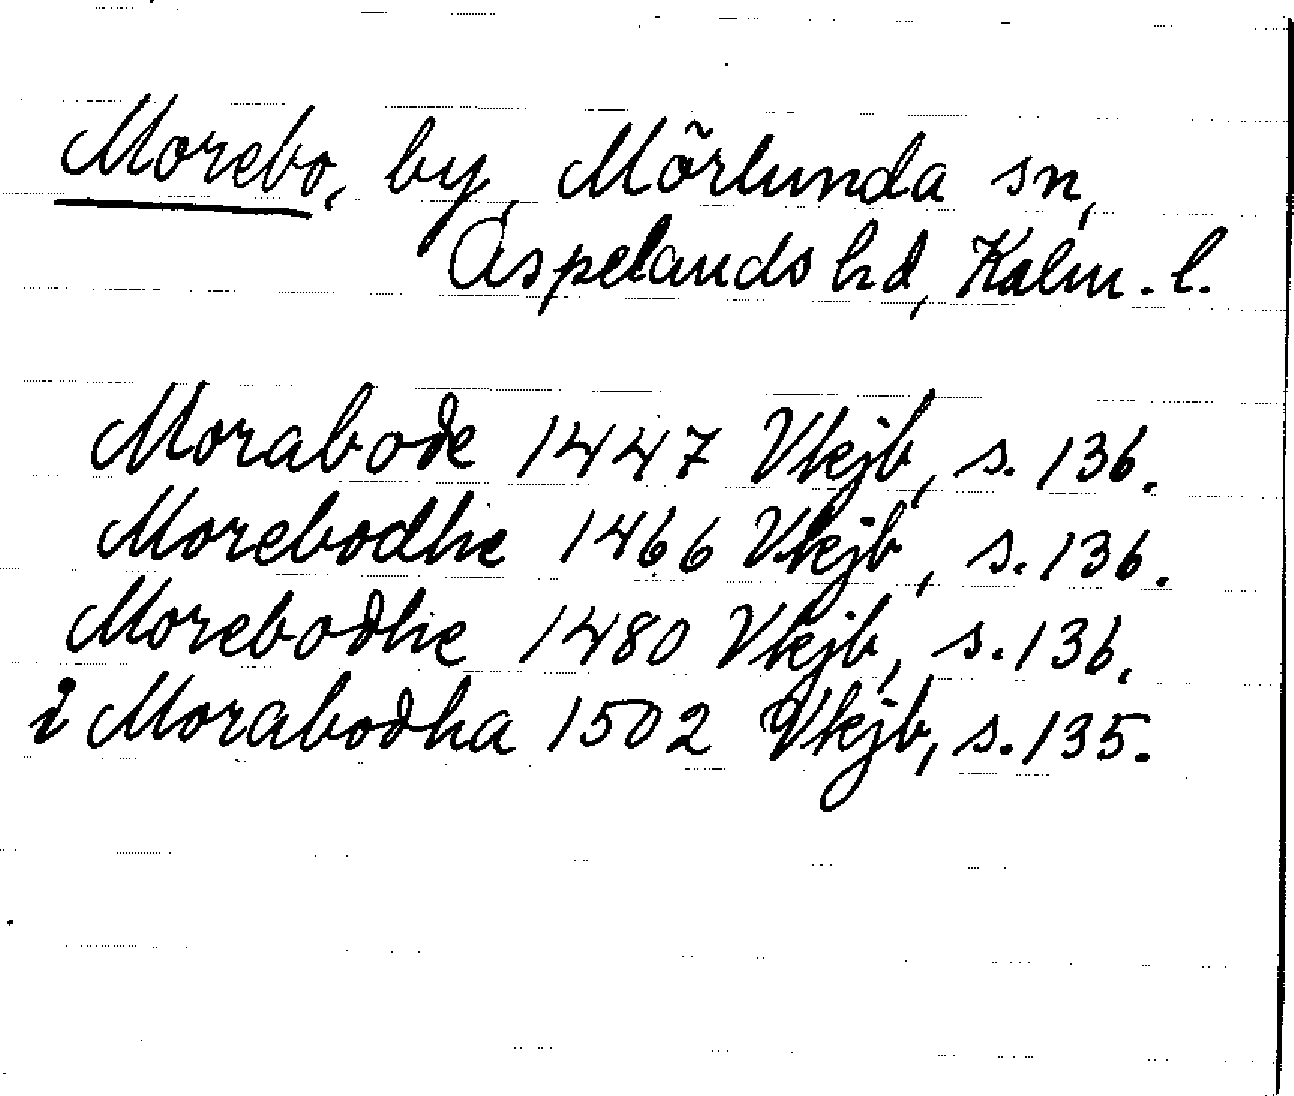 Morebo, by, Mörlunda sn,
Aspelands hd, Kalm. l.
Morabode 1447 Vkjb, s. 136.
Morebodhe 1466 Vkjb, s. 136.
Morebodhe 1480 Vkjb, s. 136.
i Morabodha 1502 Vkjb, s. 135.